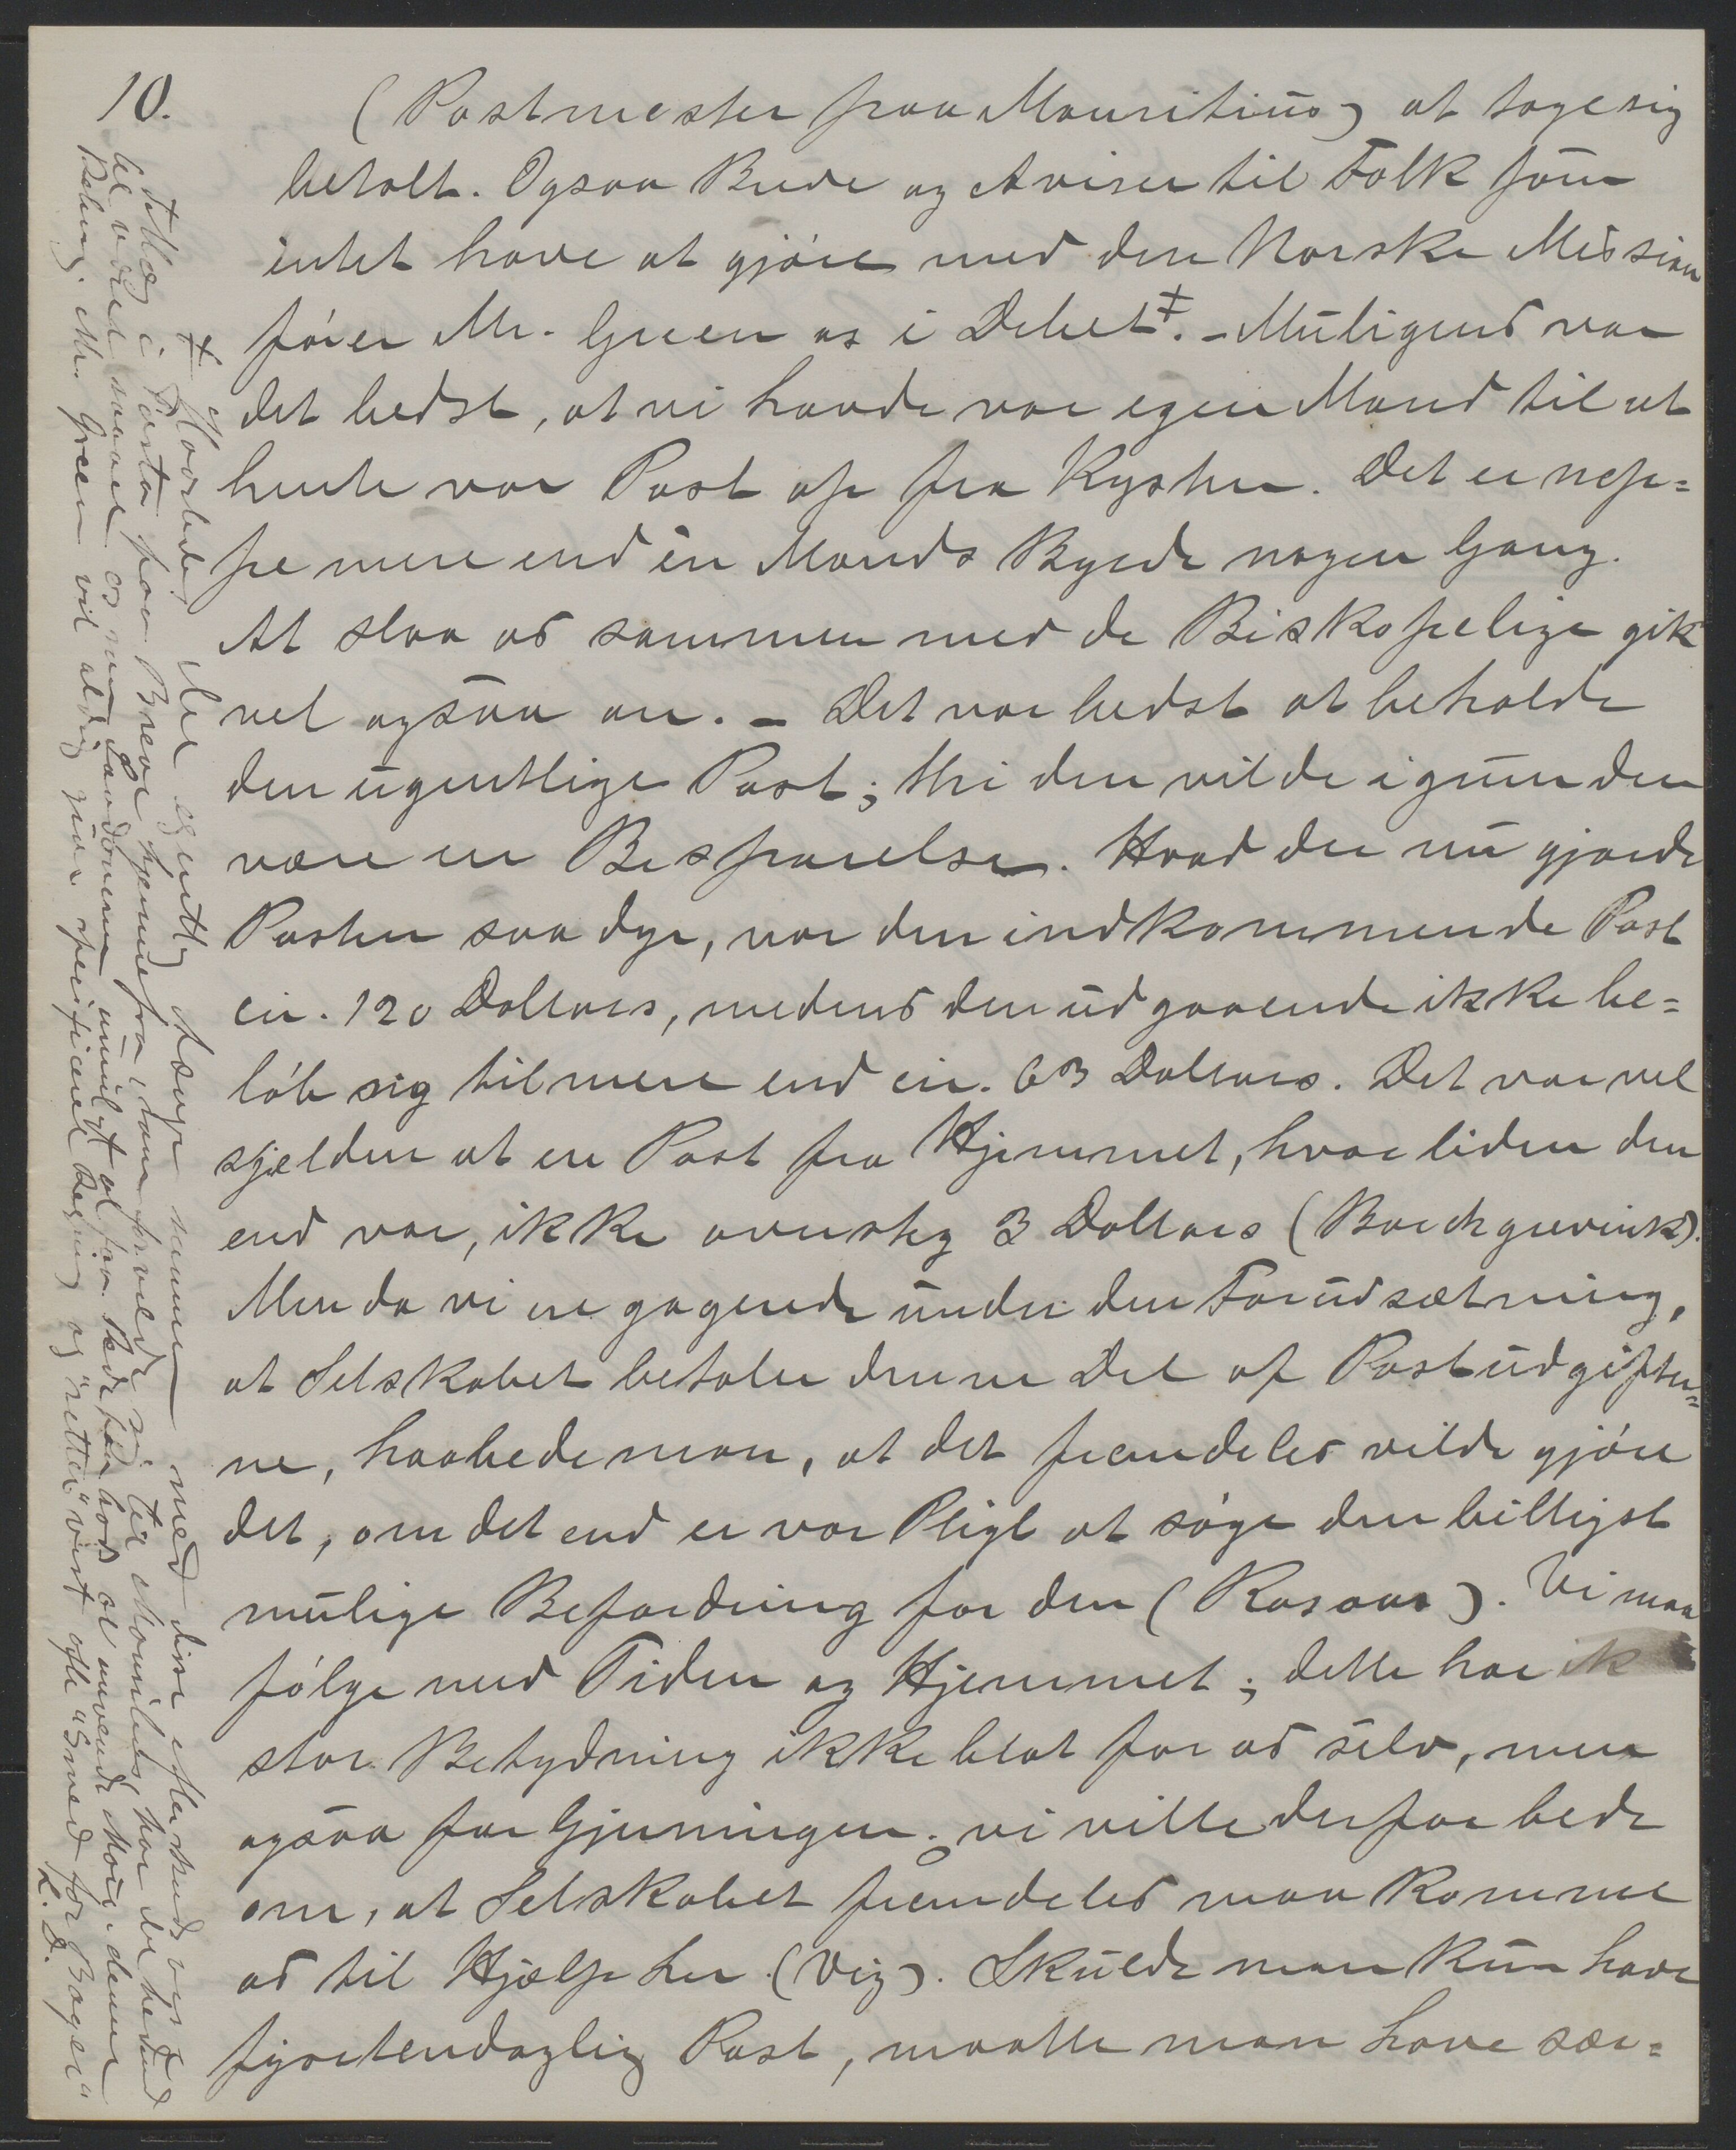 10.
(Postmester paa Mauritius) at tage sig
betalt. Ogsaa Breve og Aviser til Folk som
intet have at gjøre med den Norske Mission
fører Mr. Green os i Debet ‡. - Muligens var
det bedst, at vi havde vor egen Mand til at
hente vor Post op fra Kysten. Det er nep=
pe mere end én Mands Byrde nogen Gang.
At slaa os sammen med de Biskopelige gik
vel ogsaa an. - Det var bedst at beholde
den ugentlige Post; thi den vilde i grunden
være en Besparelse. Hvad der nu gjorde
Posten saa dyr, var den indkommende Post
cir. 120 Dollars, medens den udgaaende ikke be=
løb sig til mere end cir. 63 Dollars. Det var vel
sjelden at en Post fra Hjemmet, hvor liden den
end var, ikke oversteg 3 Dollars (Borchgrevink).
Men da vi ere gagerede under den Forudsætning,
at Selskabet betaler denne Del af Postudgifter=
ne, haabede man, at det fremdeles vilde gjøre
det, om det end er vor Pligt at søge den billigst
mulige Befordring for den (Rosaas). Vi maa
følge med Tiden og Hjemmet; dette har
stor Betydning ikke blot for os selv, men
ogsaa for Gjerningen; vi ville derfor bede
om, at Selskabet fremdeles maa komme
os til Hjælp her (Vig). Skulde man kun have
fjortendaglig Post, maatte man have sær=
‡ Hvorledes det egentlig hænger sammen med disse efterskud og
Tillæg i Porto paa Breve hjemmefra, som vi til Mauritius har
til og min
Beløb. Mr. Green vil aldrig give specificeret Regning og "retter" vist ofte "Smed for Bager"
L. D.